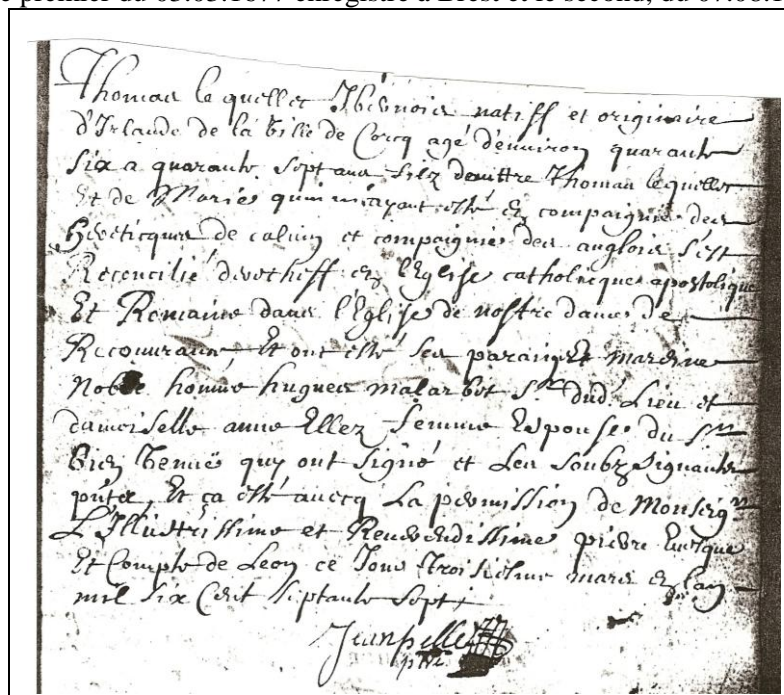 premier du 03.03.1677 enregistré à Brest et le second, du 07.08.1
Thomas le quellec Ibernois natiff et originaire
d'Irlande de la Ville de Corcq agé d'environ quarante
six a quarante sept ans filz deuittre Thomas le quellec
Et de Marie quin ayant esté en compaignie des
hereticques de calvin et compaignie des anglois s'est
Reconcilié en l'Eglise catholicque apostolique
Et Romaine dans l'Eglise de nostre dame de
Recouvrance Et ont esté ses parain Et maraine
Noble homme hugues malarbet Sr dud. Lieu et
damoiselle anne Ellez femme Espouse du Sr
Bien Venuë quy ont signé et Les soubzsignants
Et ça esté avecq La permission de Monseigr
L'Illustrissime et Reverendissime pierre Evesque
Et Compte de Leon ce Jour troisiesme mars en l'an
mil six Cent septante sept
Jean pellé
ptre